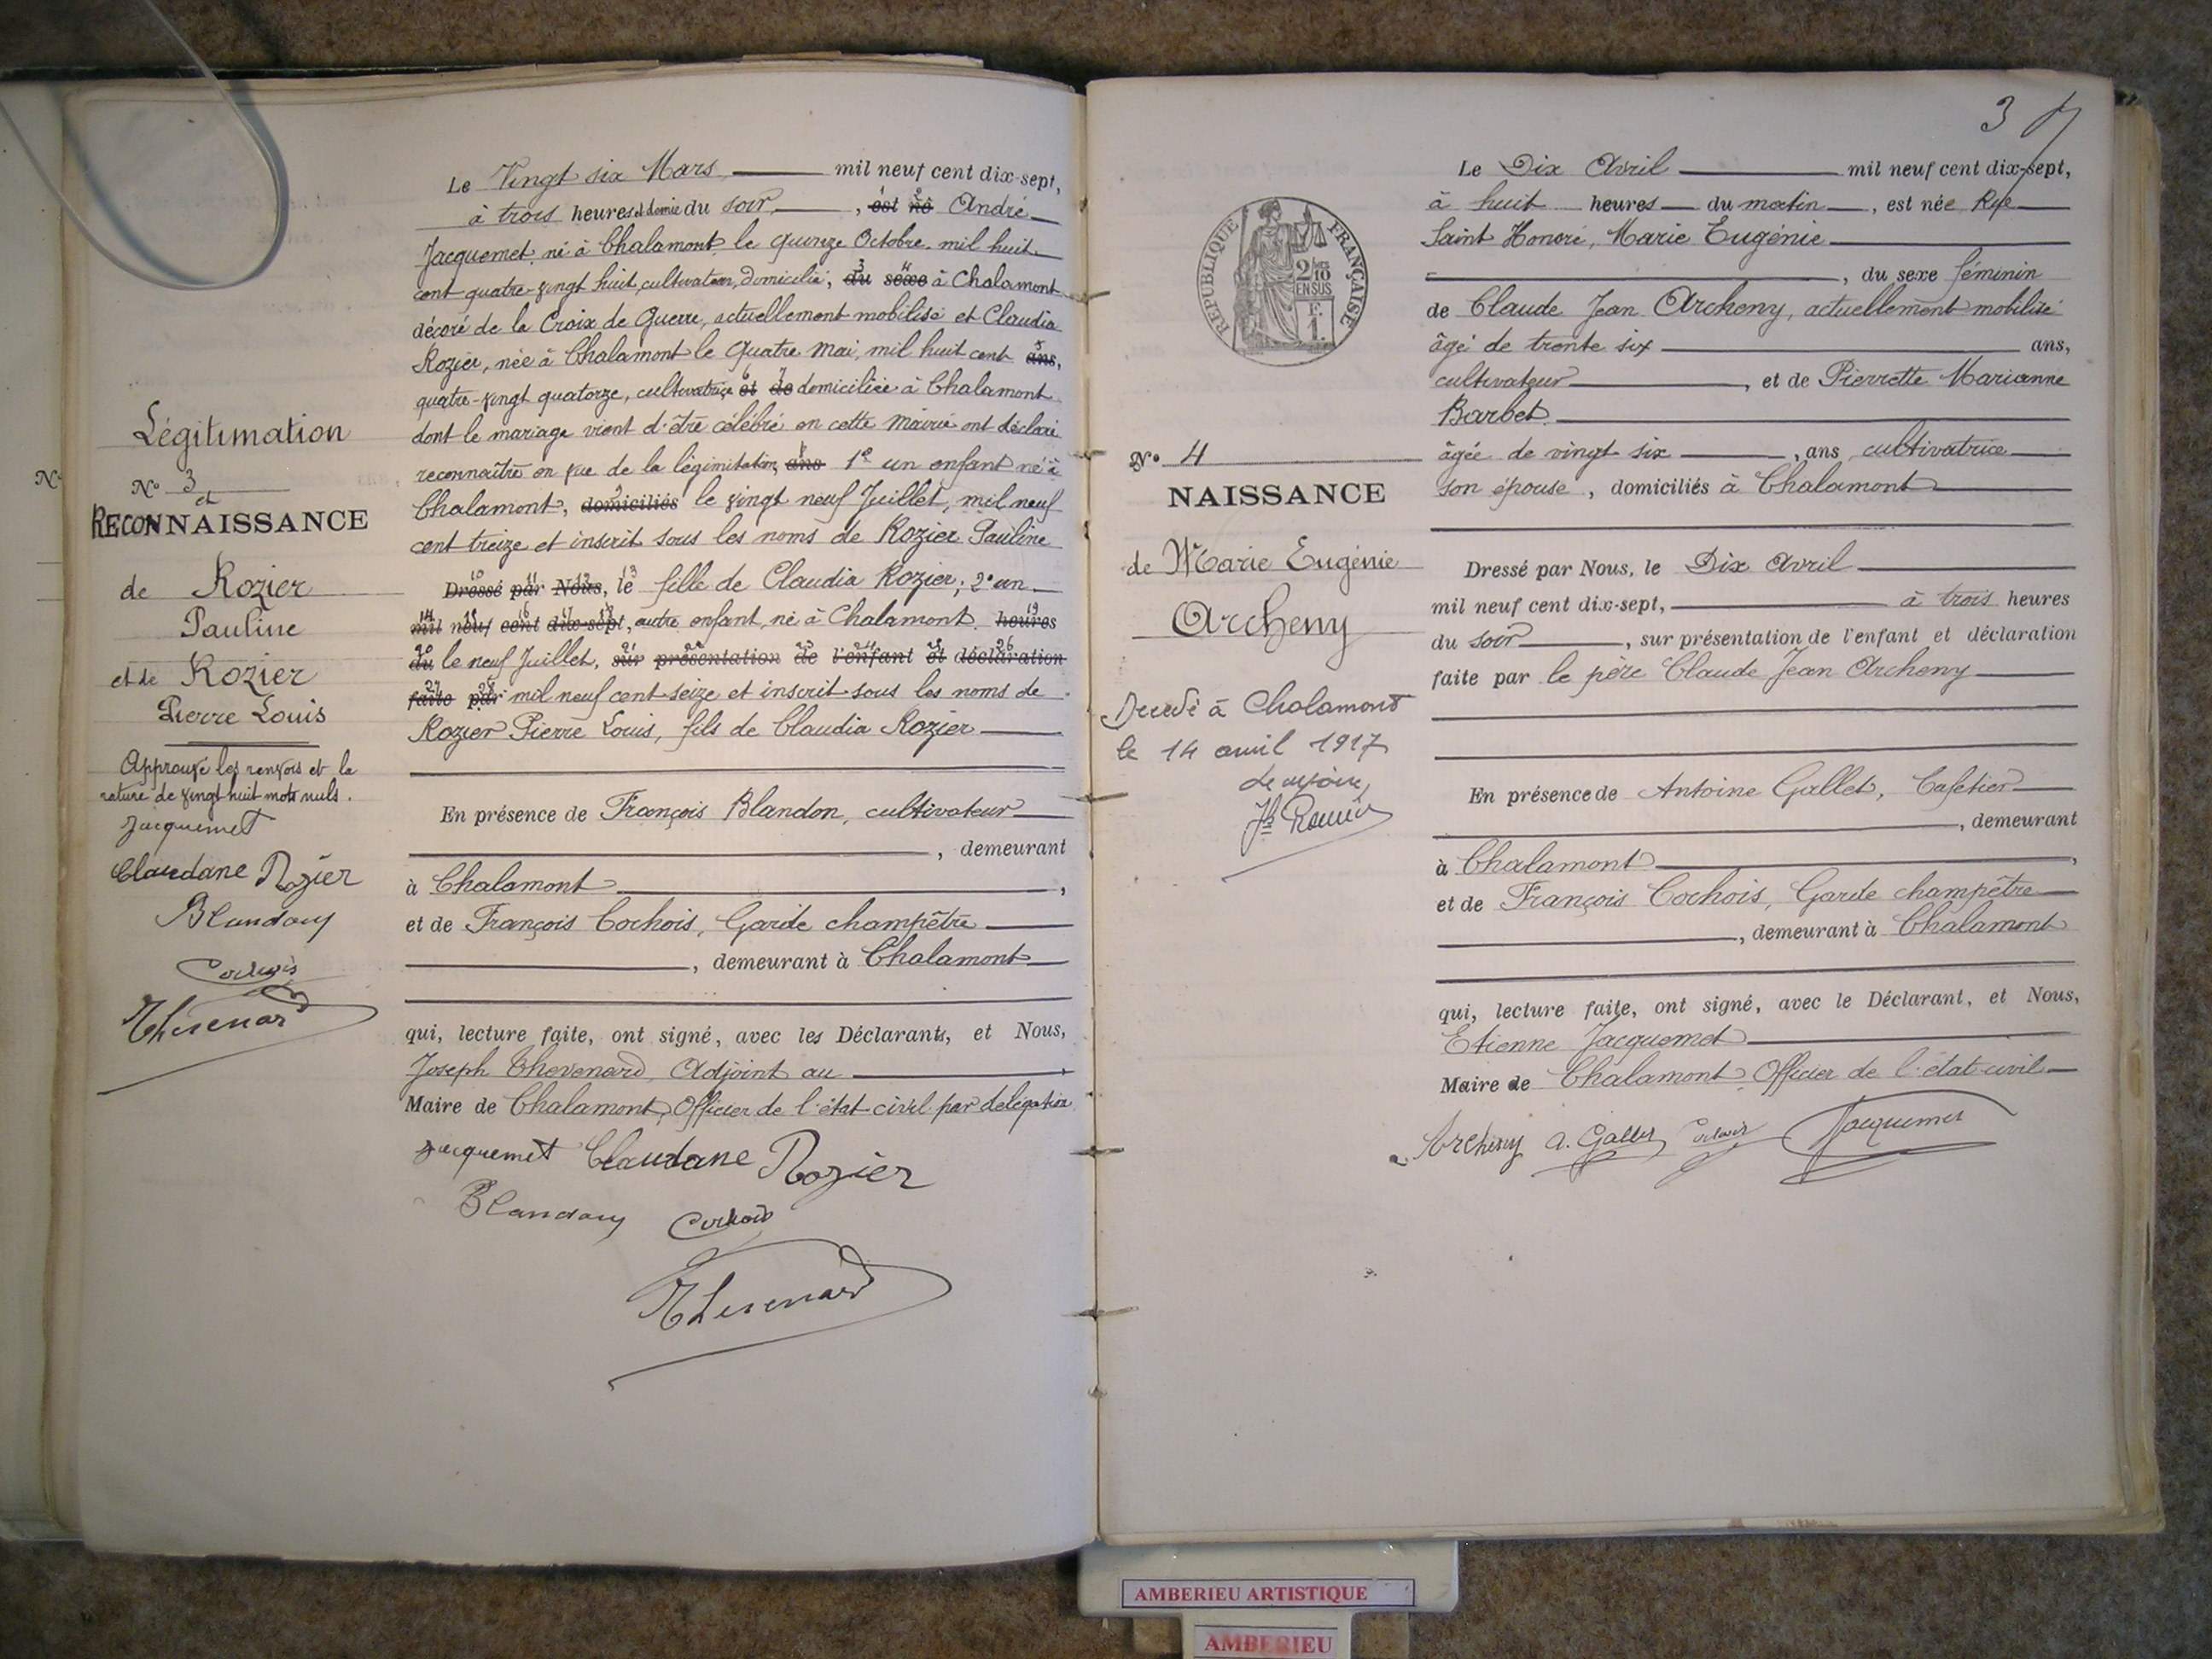 Légitimation
N° 3
et
RECONNAISSANCE
de Rozier
Pauline
et de Rozier
Pierre Louis
Approuvé les renvois et la
rature de vingt huit mots nuls.
Jacquemet
Claudane Rozier
Blandon
Cochois
Thevenard
Le Vingt six Mars mil neuf cent dix-sept,
à trois heures et demie du soir, est né André
Jacquemet né à Chalamont le quinze Octobre mil huit
cent quatre-vingt huit, cultivateur, domicilié, du sexe à Chalamont
décoré de la Croix de Guerre, actuellement mobilisé et Claudia
Rozier, née à Chalamont le quatre Mai, mil huit cent ans,
quatre-vingt quatorze, cultivatrice et de domiciliée à Chalamont
dont le mariage vient d'être célébré en cette mairie ont déclaré
reconnaître en vue de la légimitation, ans 1° un enfant né à
Chalamont, domiciliés le vingt neuf Juillet, mil neuf
cent treize et inscrit sous les noms de Rozier Pauline
Dressé par Nous, le fille de Claudia Rozier; 2° un
mil neuf cent dix-sept, autre enfant, né à Chalamont heures
du le neuf Juillet, sur présentation de l'enfant et déclaration
faite par mil neuf cent seize et inscrit sous les noms de
Rozier Pierre Louis, fils de Claudia Rozier
En présence de François Blandon, cultivateur
, demeurant
à Chalamont,
et de François Cochois, Garde champêtre
, demeurant à Chalamont
qui, lecture faite, ont signé, avec les Déclarants, et Nous,
Joseph Thevenard, Adjoint au
Maire de Chalamont, Officier de l'état-civil par délégation
Jacquemet Claudane Rozier
Blandon Cochois
Thevenard
3
RÉPUBLIQUE FRANÇAISE
2/10
EN SUS
1 F.
N° 4
NAISSANCE
de Marie Eugénie
Archeny
Décédé à Chalamont
le 14 avril 1917
Le maire,
Le Dix Avril mil neuf cent dix-sept,
à huit heures du matin, est née Rue
Saint Honoré, Marie Eugénie
, du sexe féminin
de Claude Jean Archeny, actuellement mobilisé
âgé de trente six ans,
cultivateur, et de Pierrette Marianne
Barbet
âgée de vingt six, ans cultivatrice
son épouse, domiciliés à Chalamont
Dressé par Nous, le Dix Avril
mil neuf cent dix-sept, à trois heures
du soir, sur présentation de l'enfant et déclaration
faite par le père Claude Jean Archeny
En présence de Antoine Gallet, Cafetier
, demeurant
à Chalamont,
et de François Cochois, Garde champêtre
, demeurant à Chalamont
qui, lecture faite, ont signé, avec le Déclarant, et Nous,
Etienne Jacquemet
Maire de Chalamont Officier de l'état-civil
Archeny A. Gallet Cochois Jacquemet
AMBERIEU ARTISTIQUE
AMBERIEU